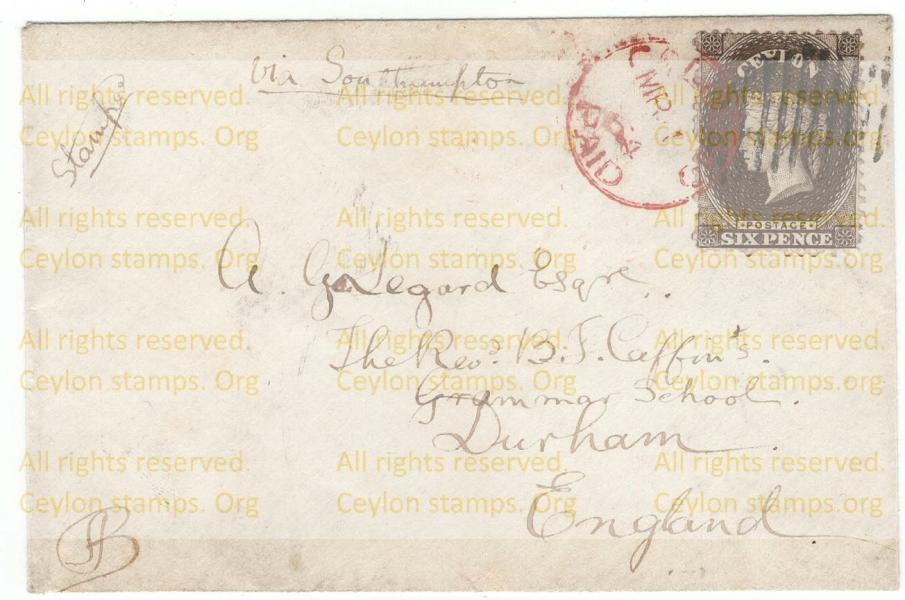 via Southampton
Stamped
CEYLON
POSTAGE
SIX PENCE
PAID
A. G. Legard Esqre.
The Revd. B. F. Caffin's.
Grammar School.
Durham
England
All rights reserved. All rights reserved. All rights reserved.
Ceylon stamps. Org Ceylon stamps. Org Ceylon stamps. Org
All rights reserved. All rights reserved. All rights reserved.
Ceylon stamps. Org Ceylon stamps. Org Ceylon stamps. org
All rights reserved. All rights reserved. All rights reserved.
Ceylon stamps. Org Ceylon stamps. Org Ceylon stamps. Org
All rights reserved. All rights reserved. All rights reserved.
Ceylon stamps. Org Ceylon stamps. Org Ceylon stamps. Org